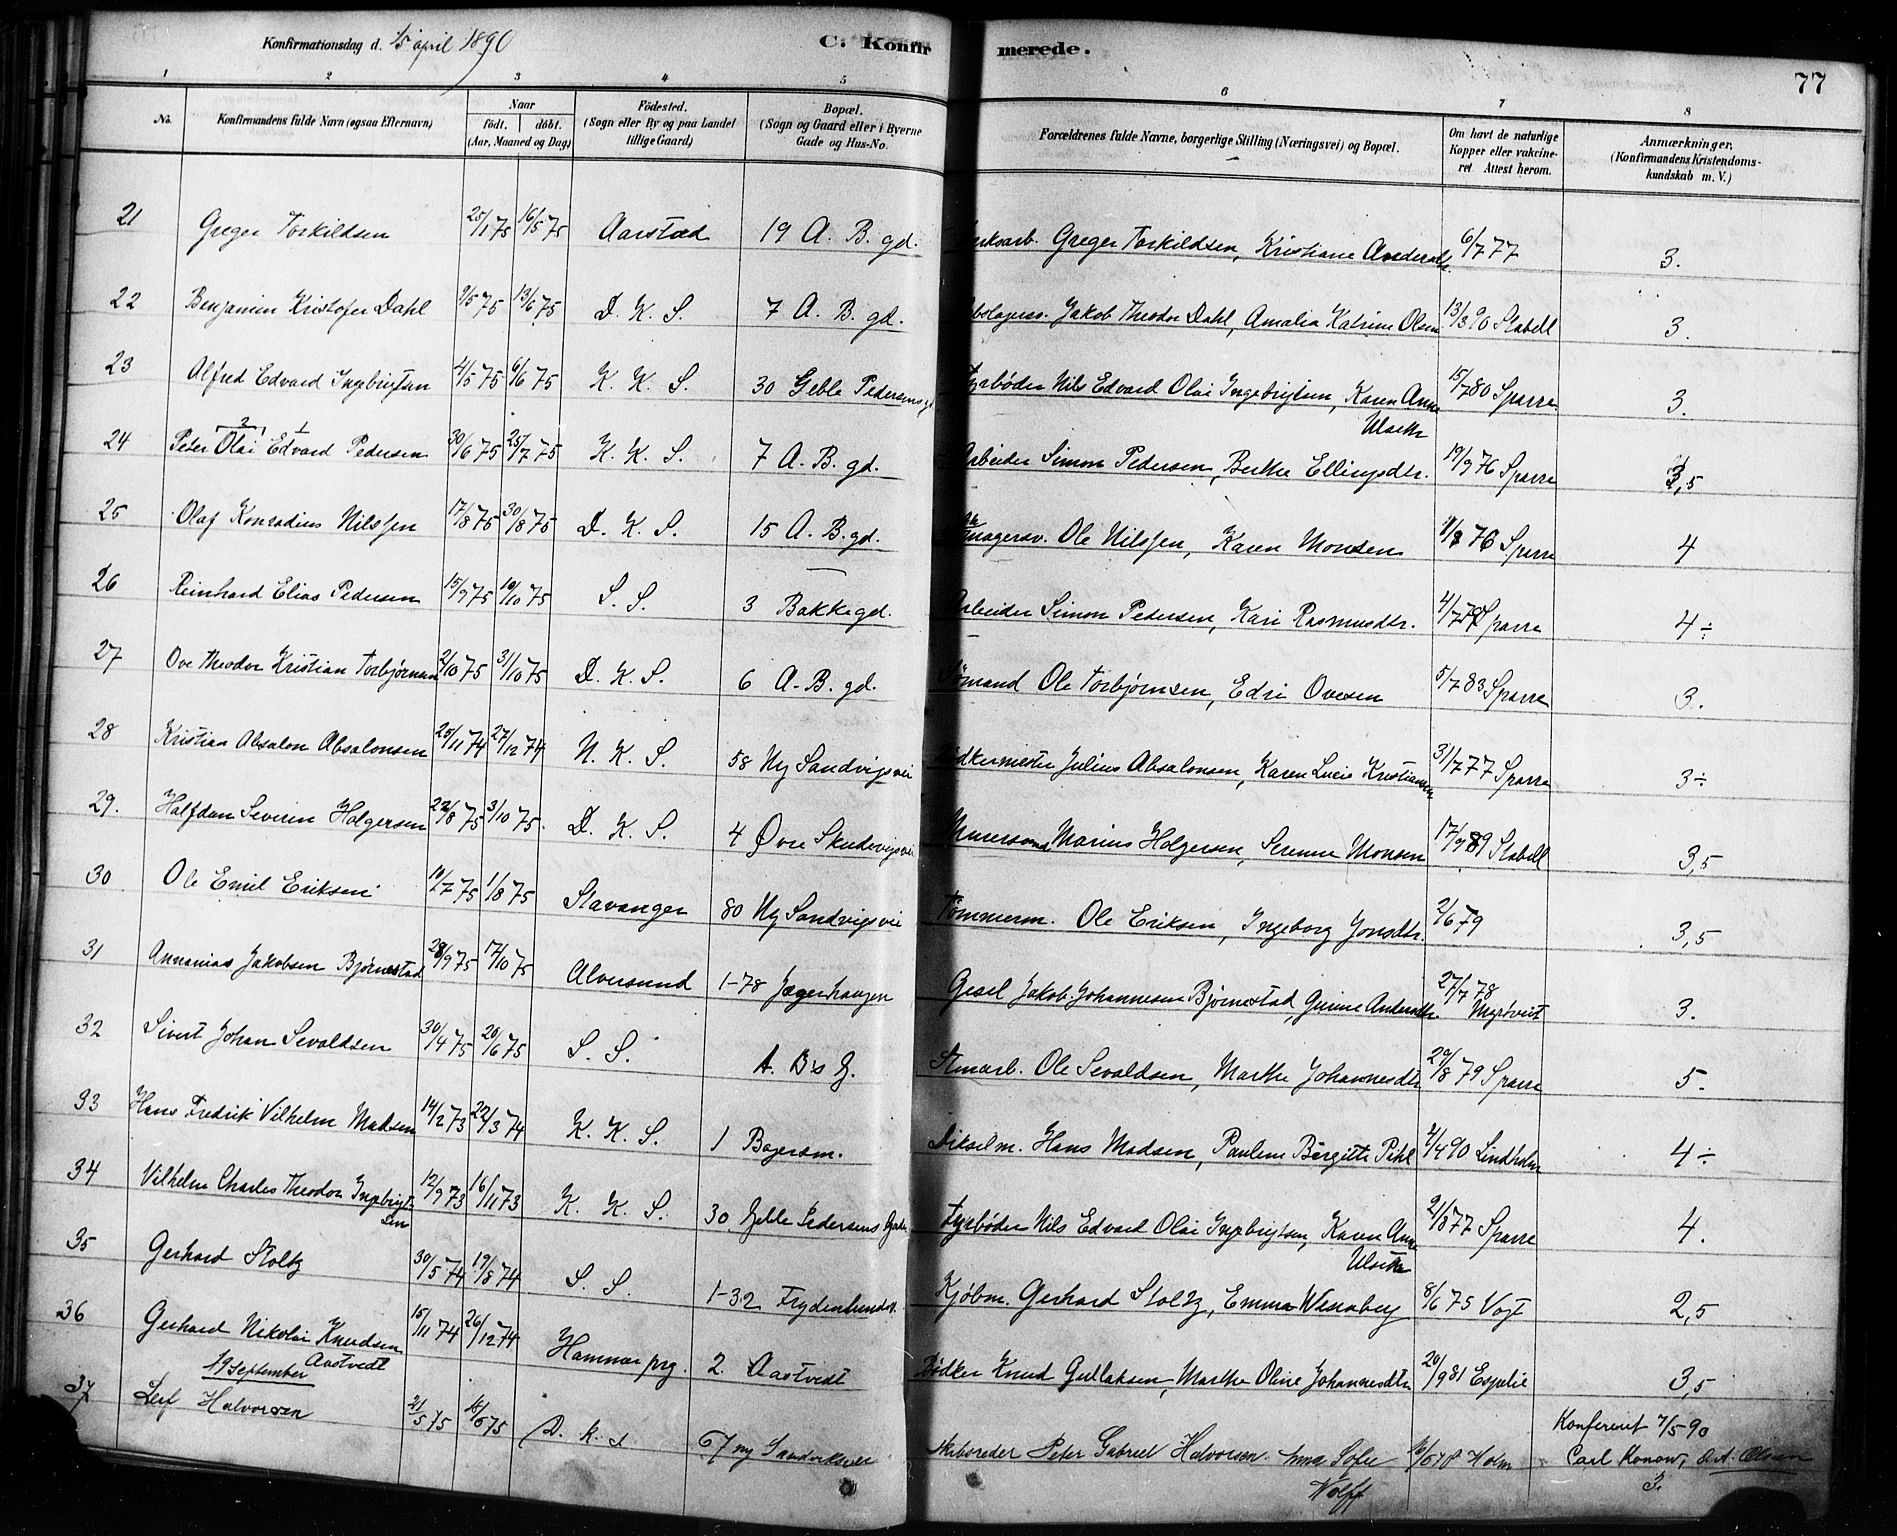 Konfirmationsdag d. 15 april 1890 C. Konfir merede. 77
1 2 3 4 5 6 7 8
No. Konfirmandens fulde Navn (ogsaa Efternavn) Naar født. døbt. (Aar, Maaned og Dag) Fødested. (Sogn eller By og paa Landet tillige Gaard) Bopæl. (Sogn og Gaard eller i Byerne Gade og Hus-No. Forældrenes fulde Navne, borgerlige Stilling (Næringsvei) og Bopæl. Om havt de naturlige Kopper eller vakcineret Attest herom. Anmærkninger. (Konfirmandens Kristendomskundskab m. V.)
21 Greger Torkildsen 25/1 75 16/5 75 Aarstad 19 A. B. gd. Greger Torkildsen, Kristiane Andersdtr. 6/7 77 3.
22 Benjamin Kristofer Dahl 9/5 75 13/6 75 D. K. S. 7 A. B. gd. Jakob Theodor Dahl, Amalia Katrine Olsen 13/3 90 Stabell 3.
23 Alfred Edvard Ingebrigtsen 4/5 75 6/6 75 K. K. S. 30 Geble Pedersens g. Fyrbøder Nils Edvard Olai Ingebrigtsen, Karen Anne Ulseth 15/7 80 Sparre 3.
24 Peter Olai Edvard Pedersen 30/6 75 25/7 75 K. K. S. 7 A. B. gd. Arbeider Simon Pedersen, Berthe Ellingsdtr. 19/9 76 Sparre 3,5
25 Olaf Konradius Nilssen 17/8 75 30/8 75 D. K. S. 15 A. B. gd. Ole Nilssen, Karen Monsen 76 Sparre 4
26 Reinhard Elias Pedersen 15/9 75 10/10 75 S. S. 3 Bakkegd. Arbeider Simon Pedersen, Kari Rasmusdtr. 4/7 Sparre 4÷
27 Ove Theodor Kristian Torbjørnsen 2/10 75 31/10 75 D. K. S. 6 A. B. gd. Sømand Ole Torbjørnsen, Edri Ovesen 5/7 83 Sparre 3.
28 Kristian Absalon Absalonsen 25/11 74 27/12 74 N. K. S. 58 Ny Sandvigsvei Bødkermester Julius Absalonsen, Karen Lucie Kristiansen 31/7 77 Sparre 3÷
29. Halfdan Severin Holgersen 22/8 75 3/10 75. D. K. S. 4 Øvre Skudevigsvei Murersvend Marius Holgersen, Serenne Monsen 17/9 89 Stabell 3,5
30 Ole Emil Eriksen 10/7 75 1/8 75 Stavanger 80 Ny Sandvigsvei Tømmerm. Ole Eriksen, Ingeborg Jonsdtr. 2/6 79 3,5
31 Annanias Jakobsen Bjørnestad 28/9 75 17/10 75 Alversund 1-78 Jægerhaugen Gesel Jakob Johannesen Bjørnestad, Gurine Andersdtr. 27/7 78 Myrtveit 3.
32 Sivert Johan Sevaldsen 30/4 75 20/6 75 S. S. A. B's G. Stenarb. Ole Sevaldsen, Marthe Johannesdtr 29/8 79 Sparre 5.
33 Hans Fredrik Vilhelm Madsen 14/12 73 22/3 74 K. K. S. 1 Bagersm. Dikselm. Hans Madsen, Pauline Birgitte Pihl 4/4 90 Lindholm 4÷
34 Vilhelm Charles Theodor Ingebrigtsen 12/9 73 16/11 73 K. K. S. 30 Geble Pedersens Gade Fyrbøder Nils Edvard Olai Ingebrigtsen, Karen Anne Ulseth 21/8 77 Sparre 4.
35 Gerhard Stoltz 30/5 74 19/8 74 S. S. 1-32 Frydenlundsv. Kjøbm. Gerhard Stoltz, Emma Wennberg 8/6 75 Vogt 2,5
36 Gerhard Nikolai Knudsen Aastvedt 15/11 74 26/12 74 Hammer prg. 2 Aastvedt Bødker Knud Gullaksen, Marthe Oline Johannesdtr 20/9 81 Espelie 3,5
19 September
37 Leif Halvorsen 21/5 75 75 D. k. s 67 ny Sandviksvei Skibsreder Peter Gabriel Halvorsen. Anna Sofie Wolff Holm Konfirmert 7/5 90 Carl Konow, O. A. Olsen 3.